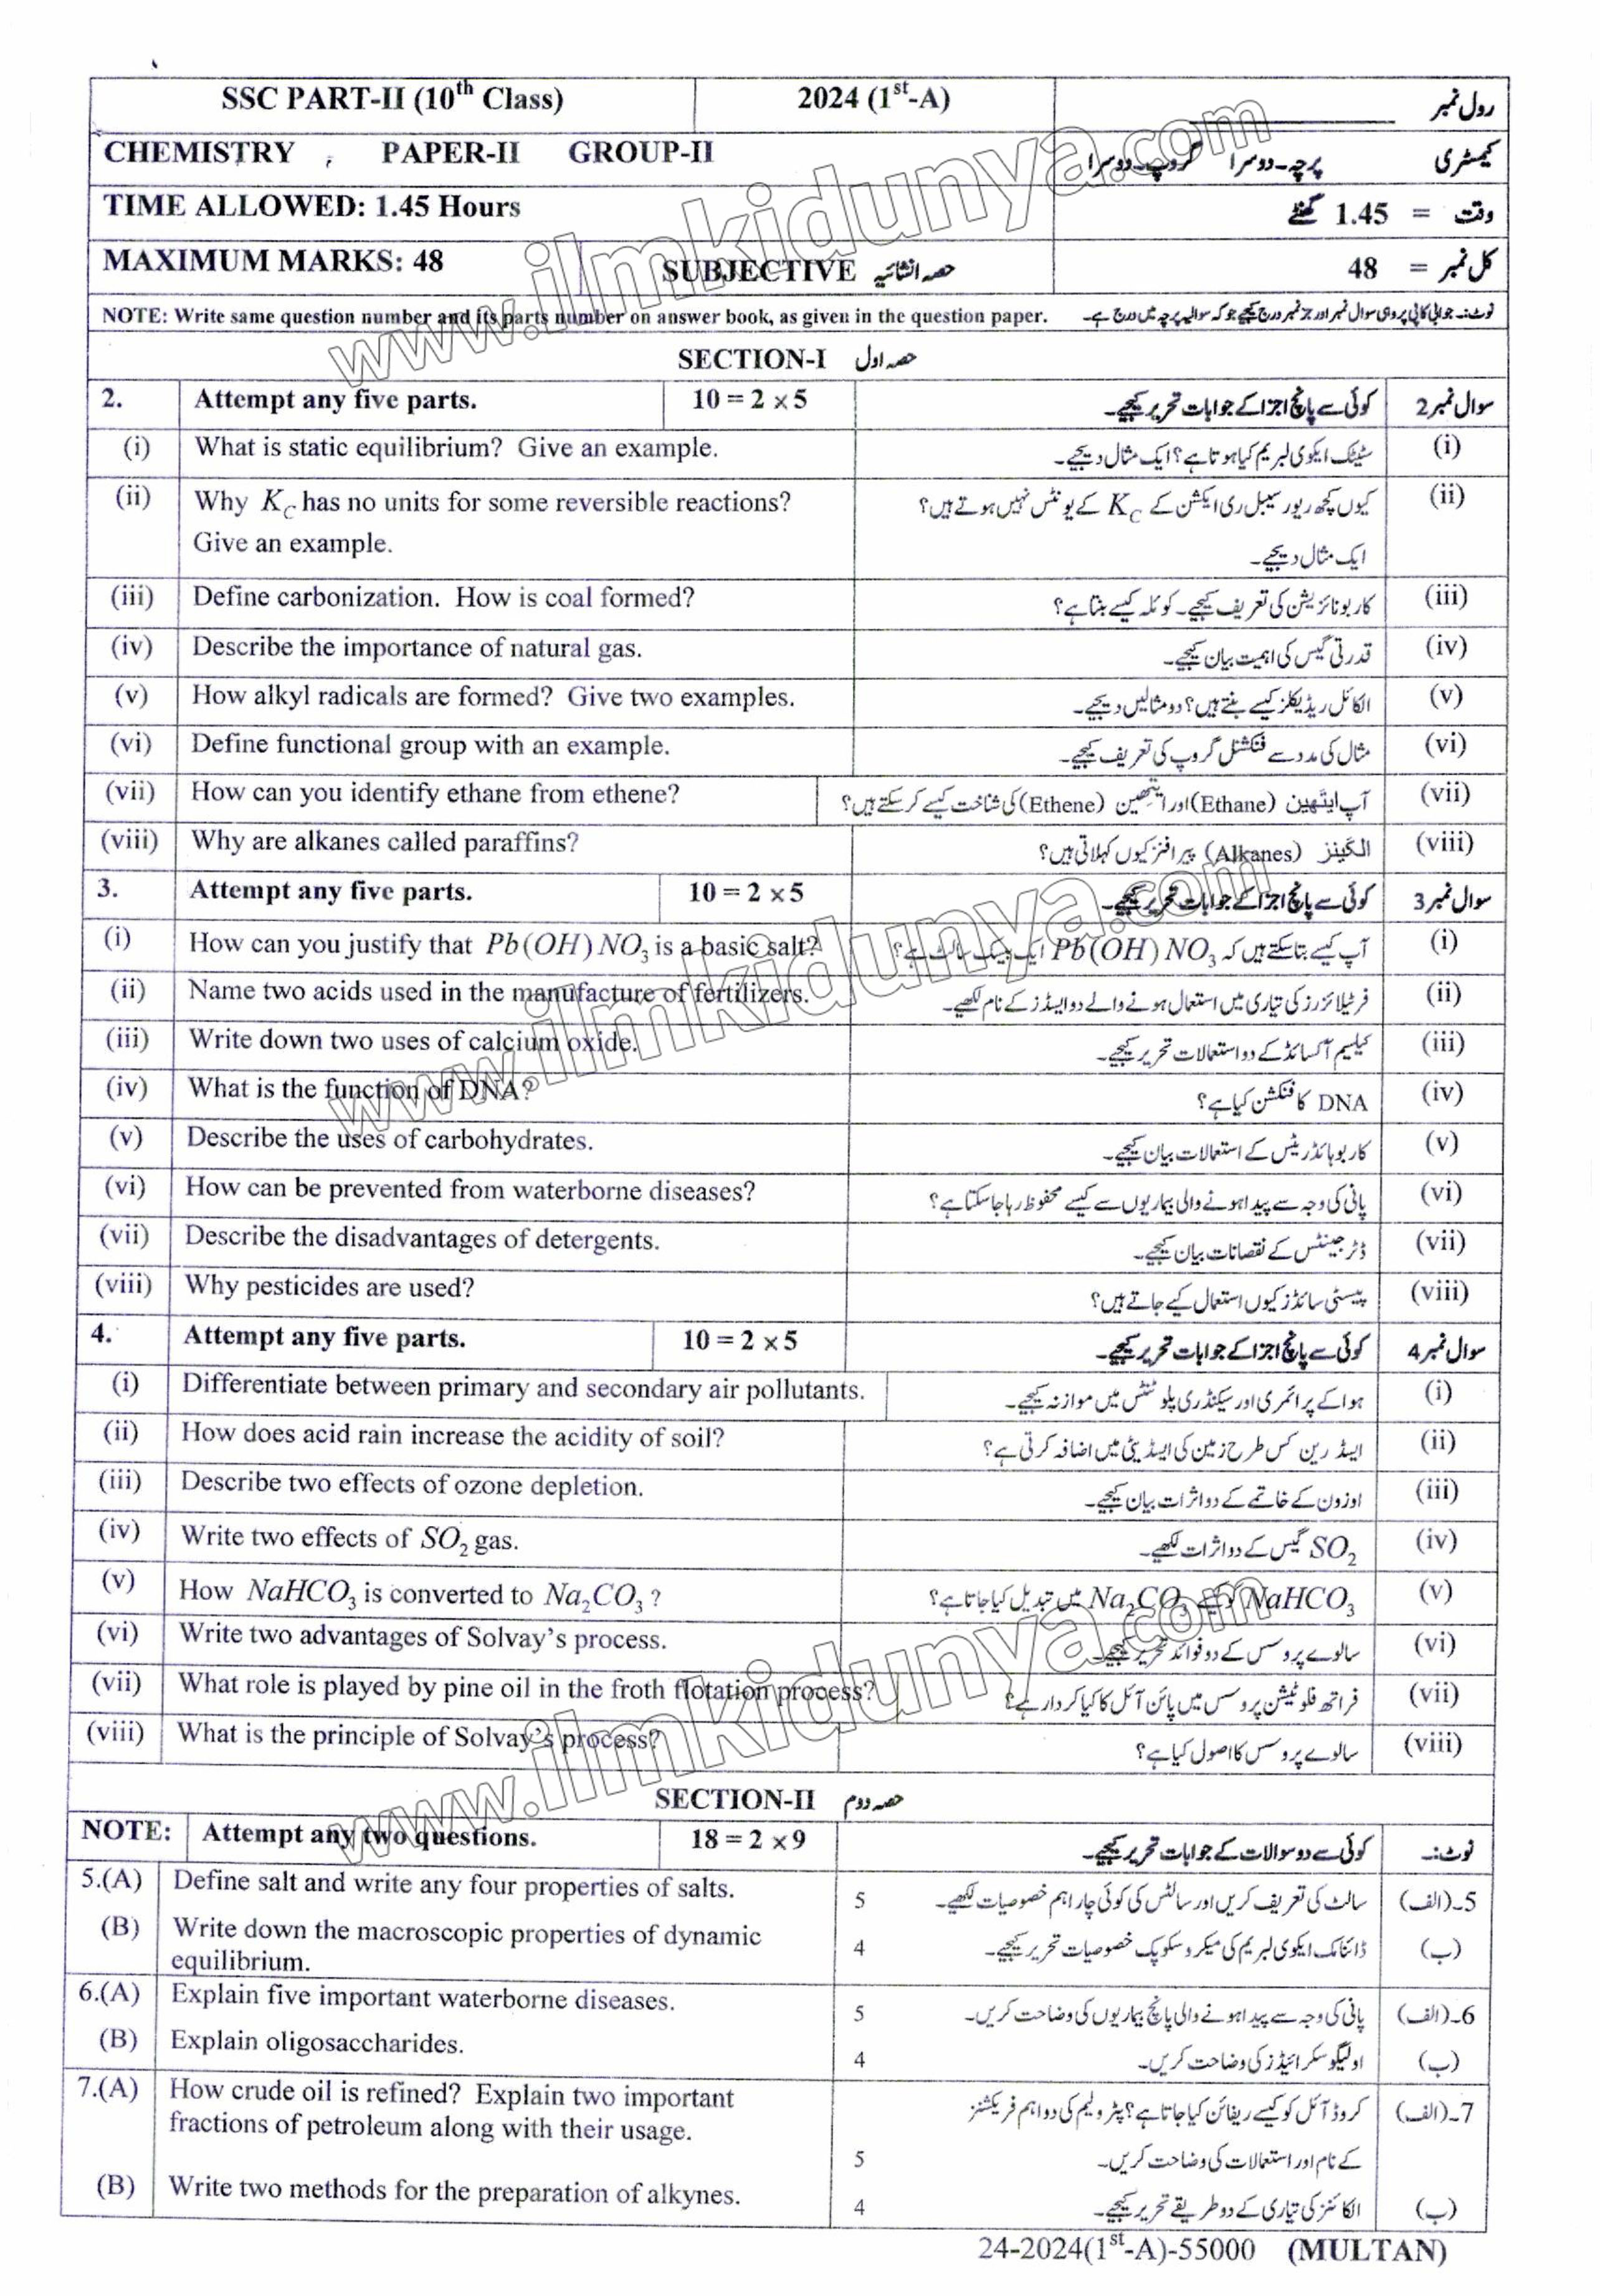 SSC PART-II (10th Class) 2024 (1st-A) رول نمبر
CHEMISTRY PAPER-II GROUP-II کیمسٹری پرچہ۔دوسرا گروپ۔دوسرا
TIME ALLOWED: 1.45 Hours وقت = 1.45 گھنٹے
MAXIMUM MARKS: 48 SUBJECTIVE حصہ انشائیہ کل نمبر = 48
NOTE: Write same question number and its parts number on answer book, as given in the question paper. نوٹ:۔ جوابی کاپی پر وہی سوال نمبر اور جز نمبر درج کیجیے جو کہ سوالیہ پرچہ میں درج ہے۔
SECTION-I حصہ اول
2. Attempt any five parts. 10 = 2 × 5 کوئی سے پانچ اجزا کے جوابات تحریر کیجیے۔ سوال نمبر 2
(i) What is static equilibrium? Give an example. سٹیٹک ایکوی لبریم کیا ہوتا ہے؟ ایک مثال دیجیے۔ (i)
(ii) Why KC has no units for some reversible reactions? کیوں کچھ ریورسیبل ری ایکشن کے KC کے یونٹس نہیں ہوتے ہیں؟ (ii)
Give an example. ایک مثال دیجیے۔
(iii) Define carbonization. How is coal formed? کاربونائزیشن کی تعریف کیجیے۔ کوئلہ کیسے بنتا ہے؟ (iii)
(iv) Describe the importance of natural gas. قدرتی گیس کی اہمیت بیان کیجیے۔ (iv)
(v) How alkyl radicals are formed? Give two examples. الکائل ریڈیکلز کیسے بنتے ہیں؟ دو مثالیں دیجیے۔ (v)
(vi) Define functional group with an example. مثال کی مدد سے فنکشنل گروپ کی تعریف کیجیے۔ (vi)
(vii) How can you identify ethane from ethene? آپ ایتھین (Ethane) اور ایتھین (Ethene) کی شناخت کیسے کر سکتے ہیں؟ (vii)
(viii) Why are alkanes called paraffins? الکینز (Alkanes) پیرافنز کیوں کہلاتی ہیں؟ (viii)
3. Attempt any five parts. 10 = 2 × 5 کوئی سے پانچ اجزا کے جوابات تحریر کیجیے۔ سوال نمبر 3
(i) How can you justify that Pb(OH)NO3 is a basic salt? آپ کیسے بتا سکتے ہیں کہ Pb(OH)NO3 ایک بیسک سالٹ ہے؟ (i)
(ii) Name two acids used in the manufacture of fertilizers. فرٹیلائزرز کی تیاری میں استعمال ہونے والے دو ایسڈز کے نام لکھیے۔ (ii)
(iii) Write down two uses of calcium oxide. کیلسیم آکسائڈ کے دو استعمالات تحریر کیجیے۔ (iii)
(iv) What is the function of DNA? DNA کا فنکشن کیا ہے؟ (iv)
(v) Describe the uses of carbohydrates. کاربوہائڈریٹس کے استعمالات بیان کیجیے۔ (v)
(vi) How can be prevented from waterborne diseases? پانی کی وجہ سے پیدا ہونے والی بیماریوں سے کیسے محفوظ رہا جا سکتا ہے؟ (vi)
(vii) Describe the disadvantages of detergents. ڈٹرجینٹس کے نقصانات بیان کیجیے۔ (vii)
(viii) Why pesticides are used? پیسٹی سائڈز کیوں استعمال کیے جاتے ہیں؟ (viii)
4. Attempt any five parts. 10 = 2 × 5 کوئی سے پانچ اجزا کے جوابات تحریر کیجیے۔ سوال نمبر 4
(i) Differentiate between primary and secondary air pollutants. ہوا کے پرائمری اور سیکنڈری پلوٹنٹس میں موازنہ کیجیے۔ (i)
(ii) How does acid rain increase the acidity of soil? ایسڈ رین کس طرح زمین کی ایسڈیٹی میں اضافہ کرتی ہے؟ (ii)
(iii) Describe two effects of ozone depletion. اوزون کے خاتمے کے دو اثرات بیان کیجیے۔ (iii)
(iv) Write two effects of SO2 gas. SO2 گیس کے دو اثرات لکھیے۔ (iv)
(v) How NaHCO3 is converted to Na2CO3? NaHCO3 کیسے Na2CO3 میں تبدیل کیا جاتا ہے؟ (v)
(vi) Write two advantages of Solvay's process. سالوے پروسس کے دو فوائد تحریر کیجیے۔ (vi)
(vii) What role is played by pine oil in the froth flotation process? فراتھ فلوٹیشن پروسس میں پائن آئل کا کیا کردار ہے؟ (vii)
(viii) What is the principle of Solvay's process? سالوے پروسس کا اصول کیا ہے؟ (viii)
SECTION-II حصہ دوم
NOTE: Attempt any two questions. 18 = 2 × 9 کوئی سے دو سوالات کے جوابات تحریر کیجیے۔ نوٹ:۔
5.(A) Define salt and write any four properties of salts. 5 سالٹ کی تعریف کریں اور سالٹس کی کوئی چار اہم خصوصیات لکھیے۔ 5۔(الف)
(B) Write down the macroscopic properties of dynamic 4 ڈائنامک ایکوی لبریم کی میکروسکوپک خصوصیات تحریر کیجیے۔ (ب)
equilibrium.
6.(A) Explain five important waterborne diseases. 5 پانی کی وجہ سے پیدا ہونے والی پانچ بیماریوں کی وضاحت کریں۔ 6۔(الف)
(B) Explain oligosaccharides. 4 اولیگوسکرائیڈز کی وضاحت کریں۔ (ب)
7.(A) How crude oil is refined? Explain two important کروڈ آئل کو کیسے ریفائن کیا جاتا ہے؟ پٹرولیم کی دو اہم فریکشنز 7۔(الف)
fractions of petroleum along with their usage. 5 کے نام اور استعمالات کی وضاحت کریں۔
(B) Write two methods for the preparation of alkynes. 4 الکائنز کی تیاری کے دو طریقے تحریر کیجیے۔ (ب)
24-2024(1st-A)-55000 (MULTAN)
www.ilmkidunya.com
www.ilmkidunya.com
www.ilmkidunya.com